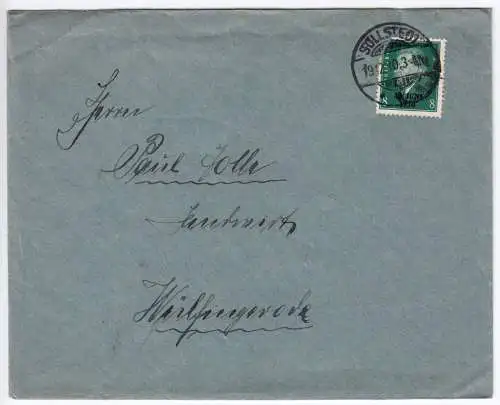 SOLLSTEDT
8 8
Herrn
Paul Bolle
Landwirt
Wülfingerode